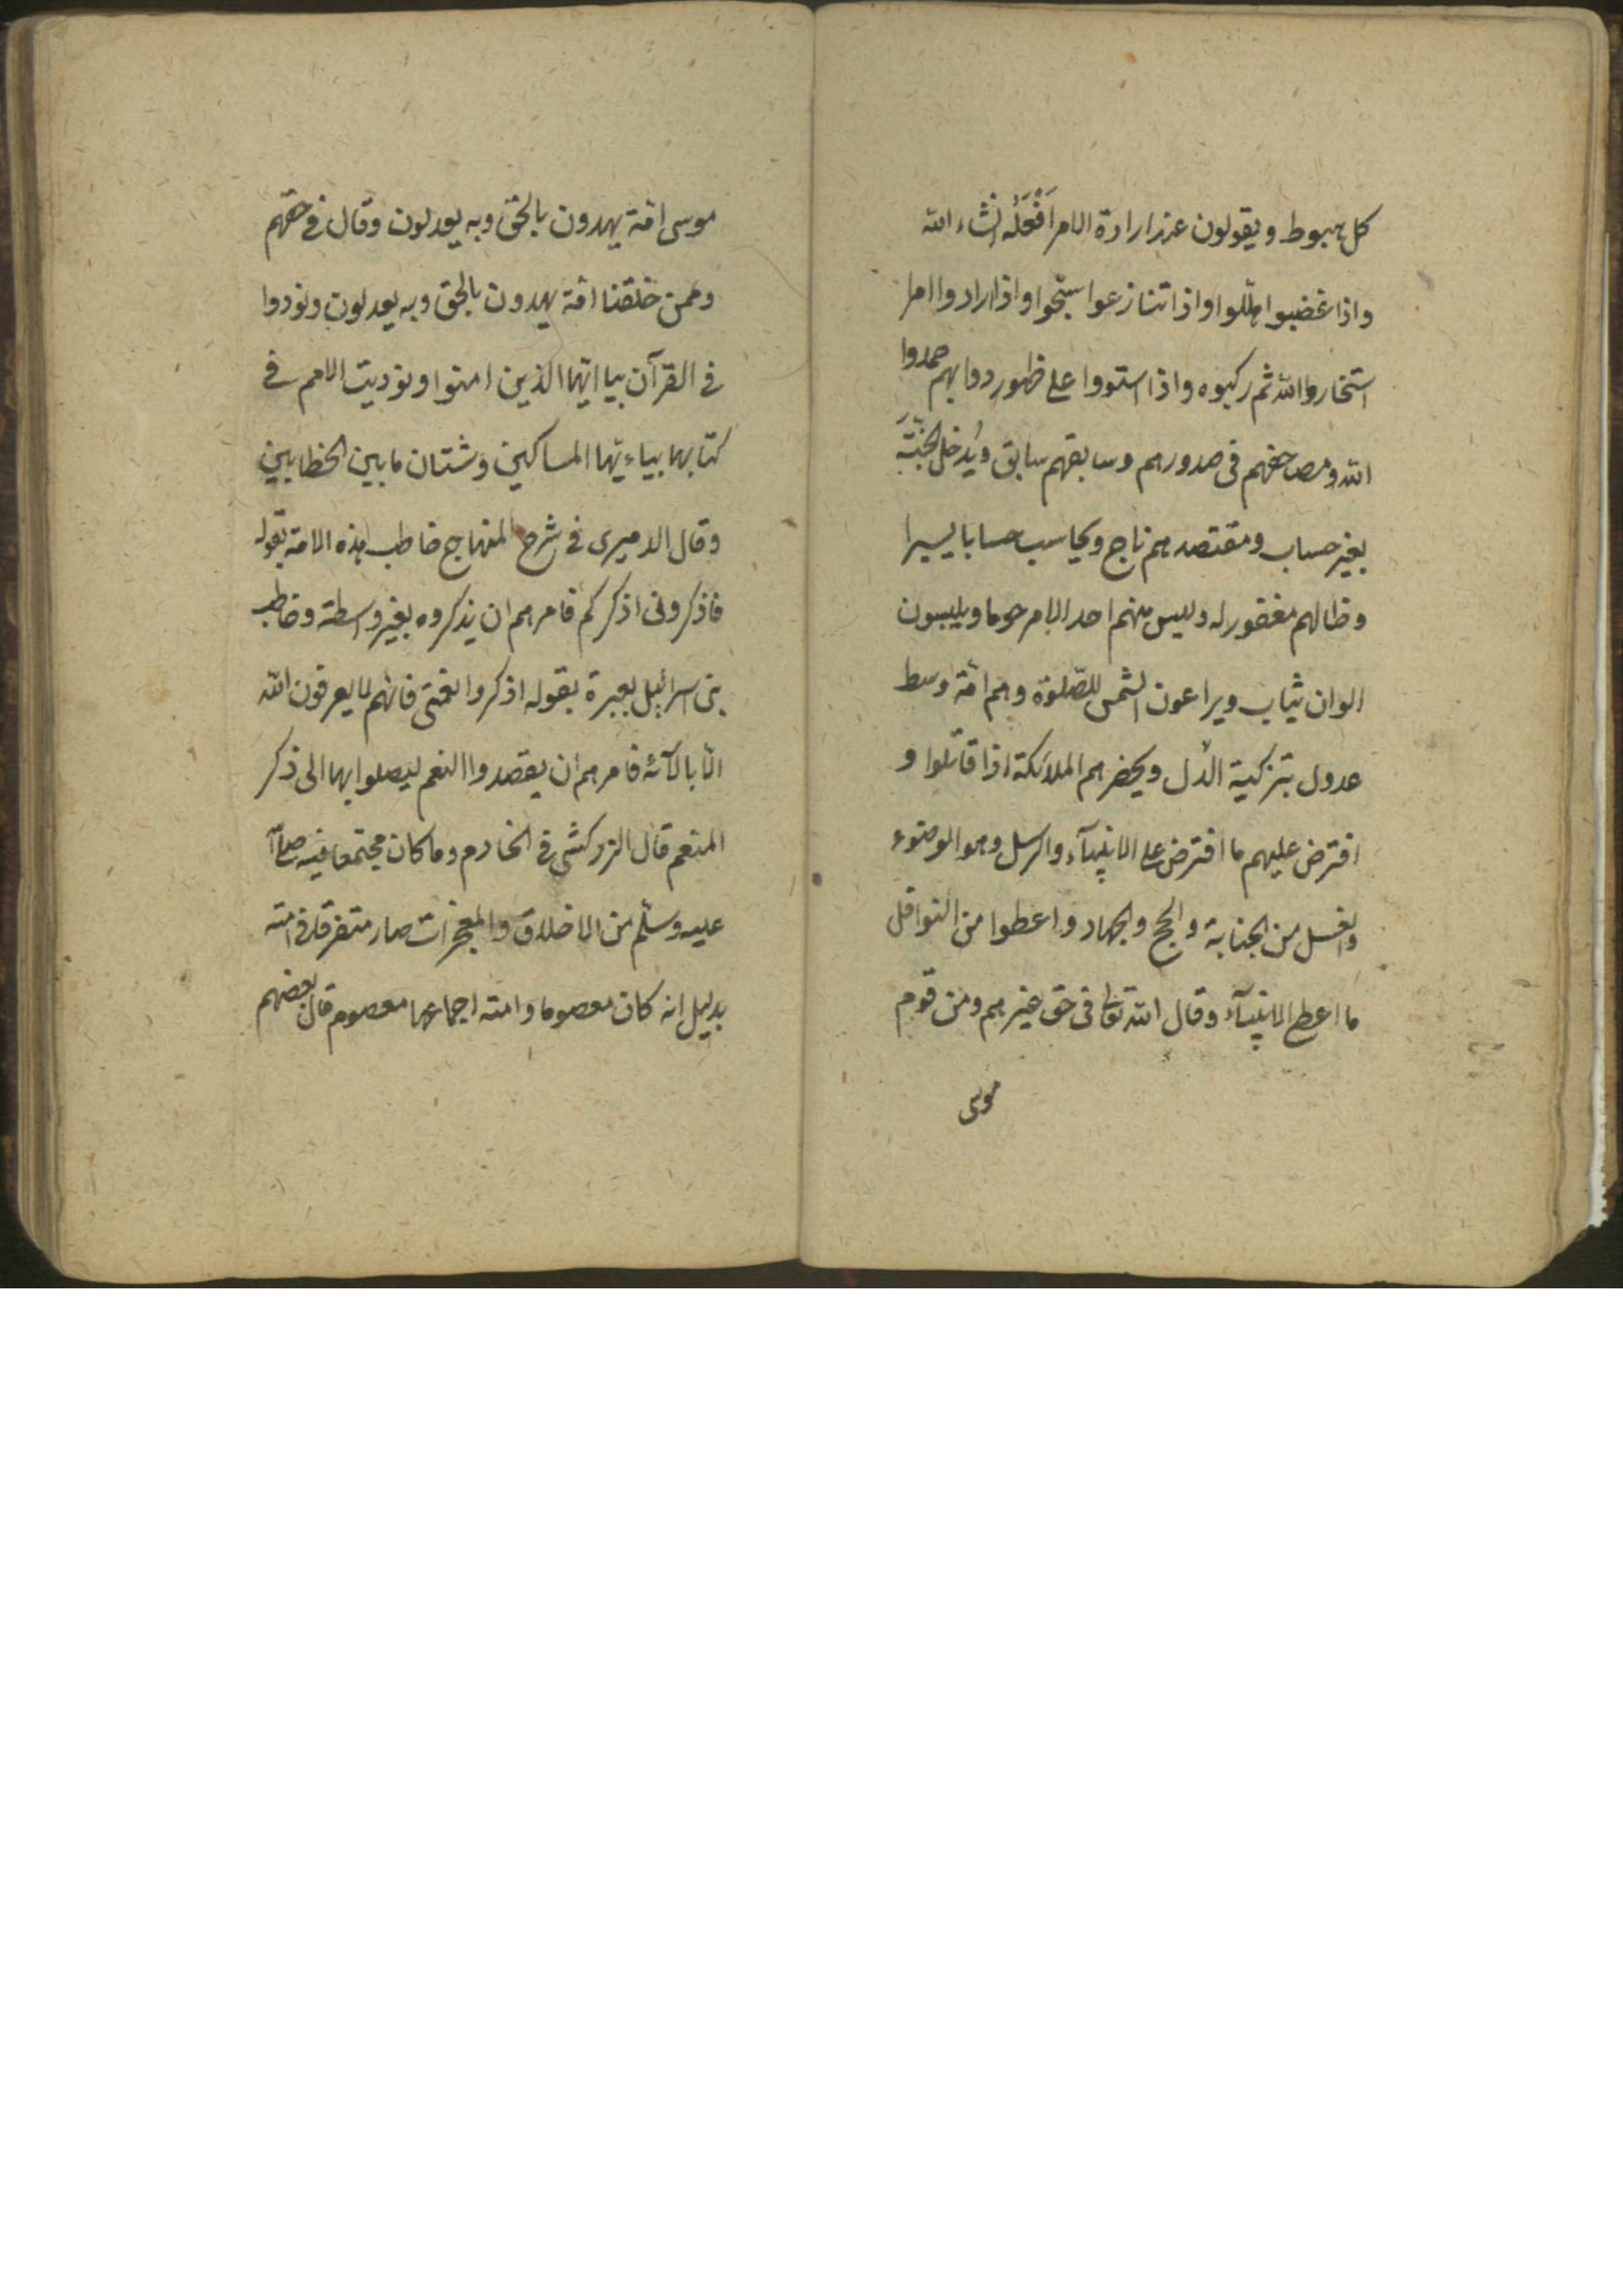 كل هبوط ويقولون عند ارادة الامر اَفْعَلُه انشاء الله
واذا غضبوا هللوا واذا تنازعوا سبحوا واذا ارادوا امرا
استخاروا الله ثم ركبوه واذا استووا على ظهور دوابهم حمدوا
الله ومصاحفهم فى صدورهم وسابقهم سابق ويُدخل الجنّةَ
بغير حساب ومقتصدهم ناج ويحاسب حسابا يسيرا
وظالهم مغفور له وليس منهم احد الا مرحوما ويلبسون
الوان ثياب ويراعون الشمس للصّلوة وهم امّة وسط
عدول بتزكية الله ويحضرهم الملائكة اذا قاتلوا و
افترض عليهم ما افترض على الانبيآء والرسل وهو الوضوء
والغسل من الجنابة والحج والجهاد واعطوا من النوافل
ما اعطى الانبيآء وقال الله تعالى فى حق غيرهم ومن قوم
موسى
موسى امّة يهدون بالحق وبه يعدلون وقال فى حقهم
وممن خلقنا امّة يهدون بالحق وبه يعدلون ونودوا
فى القرآن بيا ايّها الذين امنوا ونوديت الامم فى
كتابها بياءيّها المساكين وشتان ما بين الخطابين
وقال الدميرى فى شرح المنهاج خاطب هذه الامة بقوله
فاذكرونى اذكركم فامرهم ان يذكروه بغير واسطة وخاطب
بنى اسرائيل بعبرة بقوله اذكروا نعمتى فانهم لا يعرفون الله
الّا بالآئه فامرهم ان يقصدوا النعم ليصلوا بها الى ذكر
المنعم قال الزركشى فى الخادم وما كان مجتمعا فيه صلى الله
عليه وسلّم من الاخلاق والمعجزات صار متفرقا فى امته
بدليل انه كان معصوما وامته اجماعها معصوم قال بعضهم